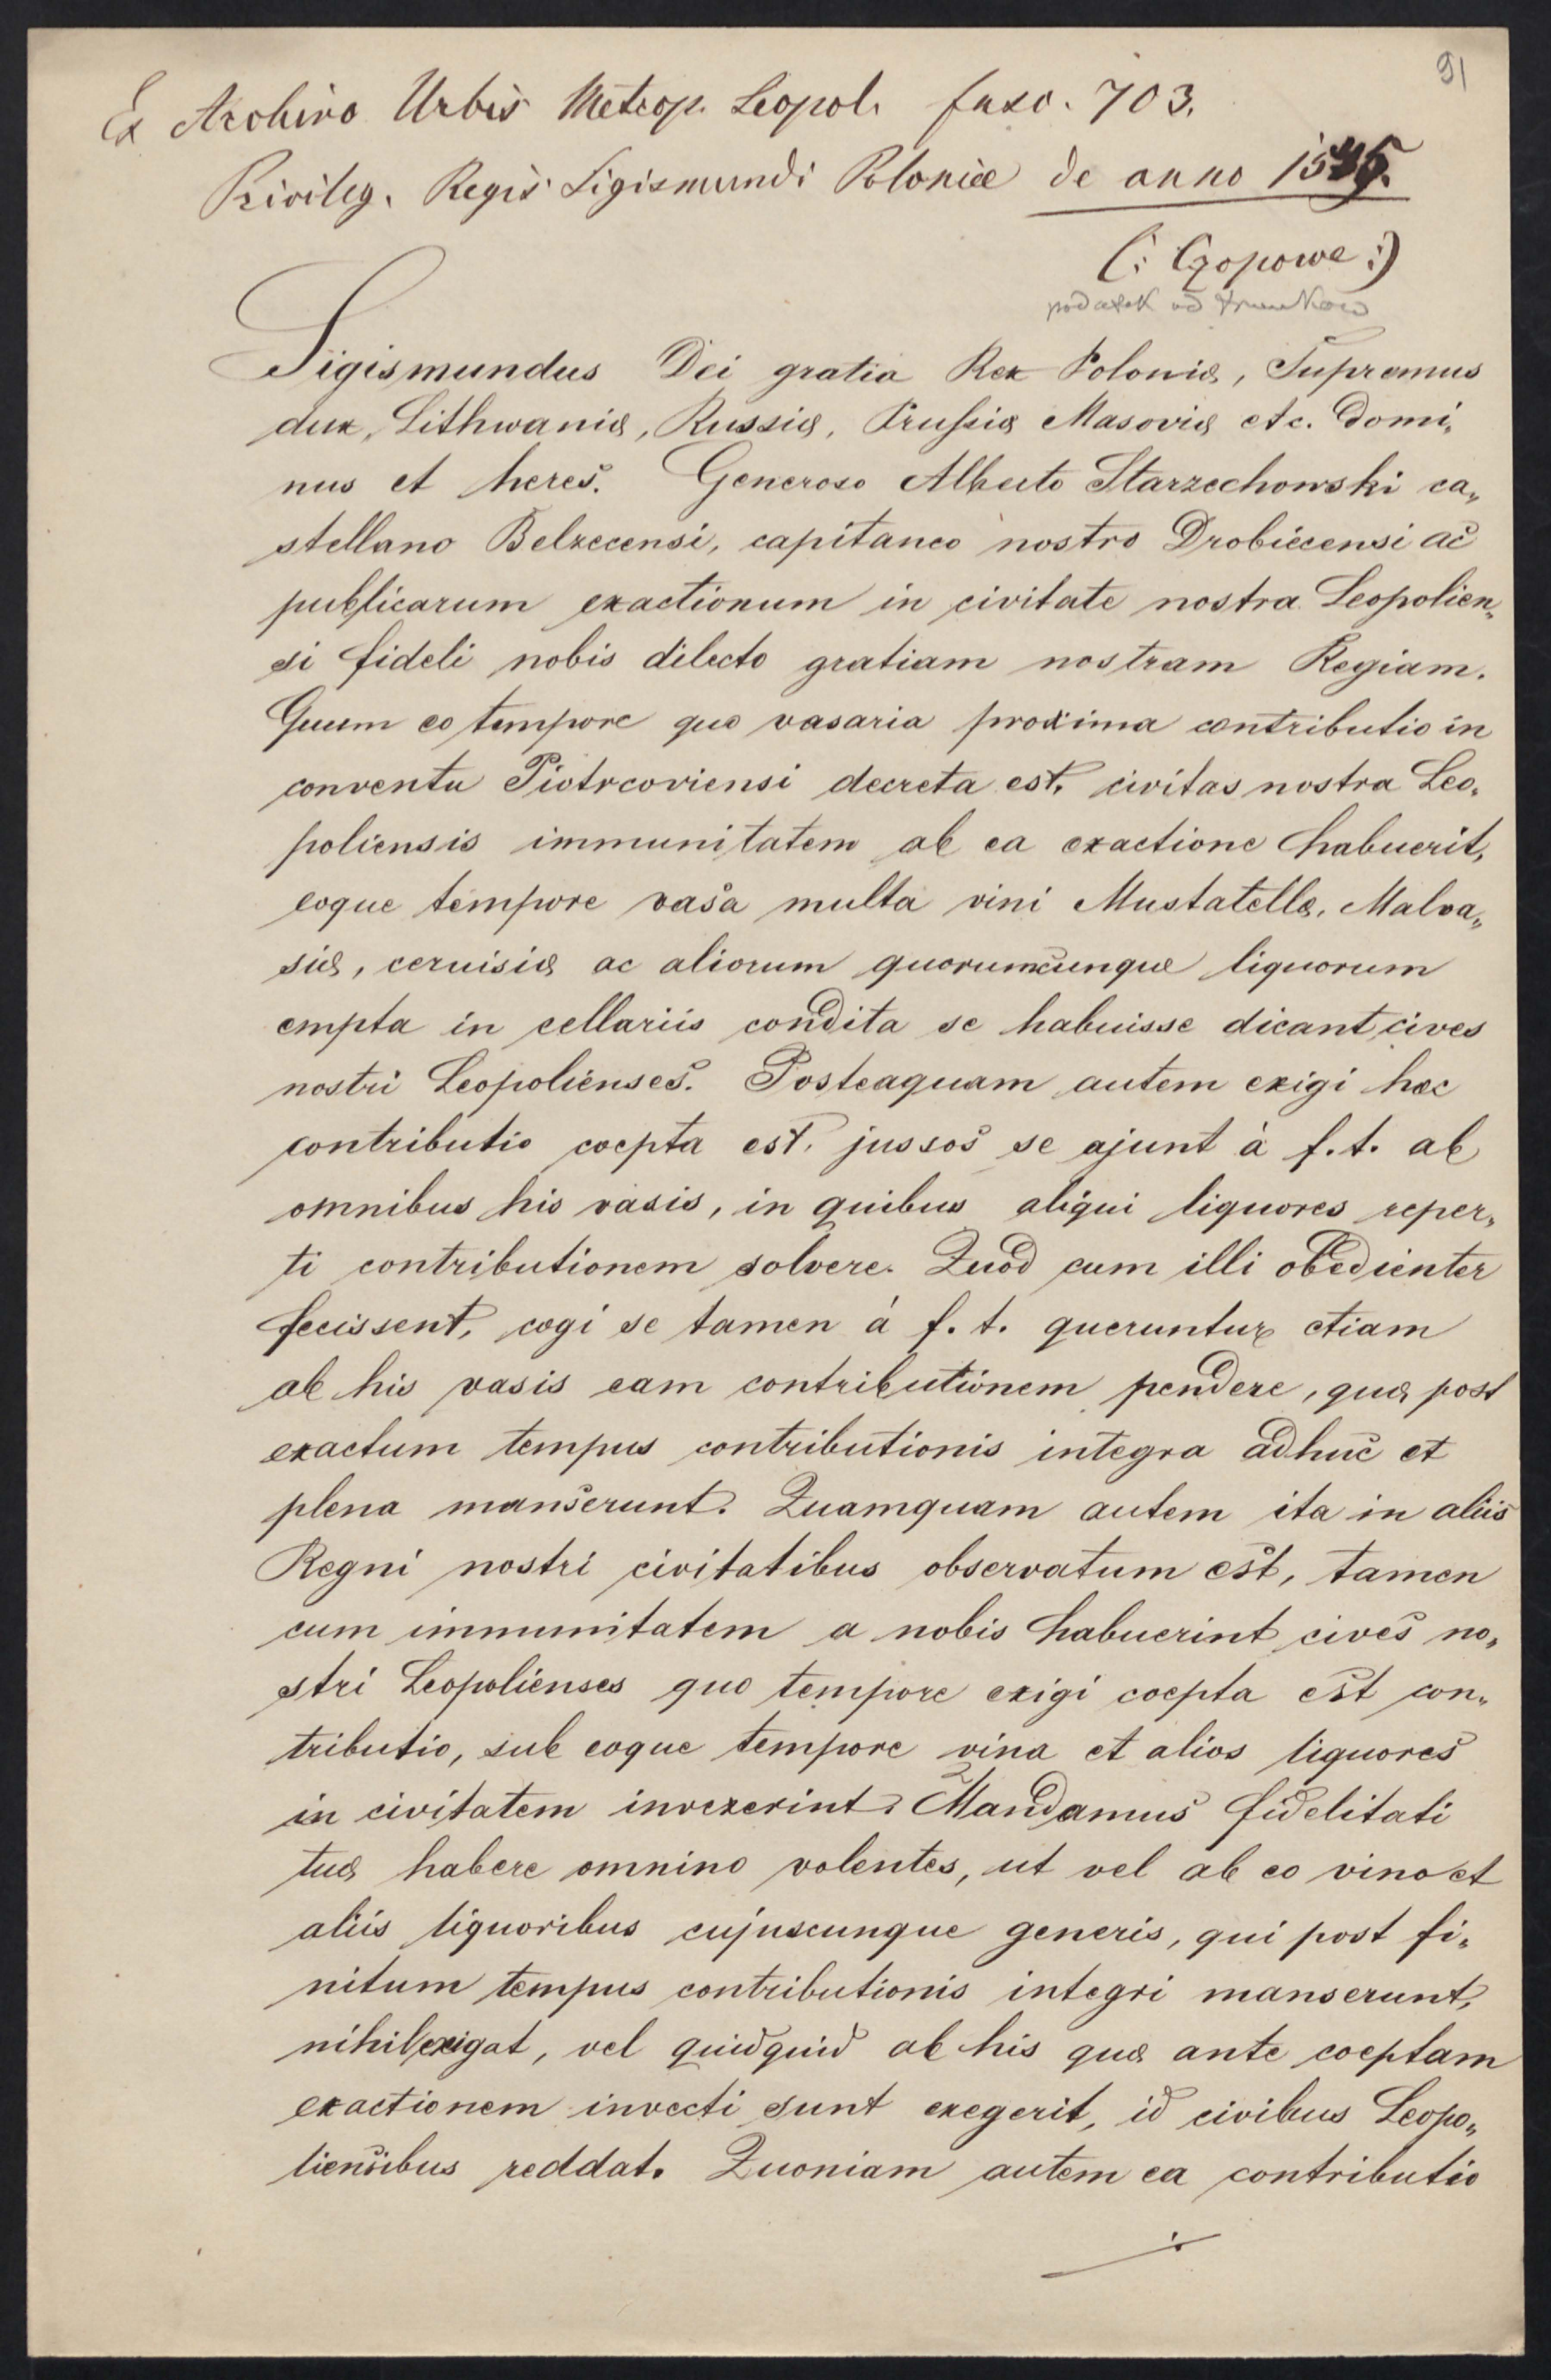 91
Ex Archivo Urbis Metrop. Leopol. fasc. 703.
Privileg. Regis Sigismundi Poloniæ de anno
(: Czopowe :)
podatek od trunków
Sigismundus Dei gratia Rex Poloniæ, Supremus
dux, Lithwaniæ, Russiæ, Prussiæ Masoviæ etc. Domi„
nus et heres. Generoso Alberto Starzechowski ca„
stellano Belzecensi, capitaneo nostro Drobiecensi ac
publicarum exactionum in civitate nostra Leopolien„
si fideli nobis dilecto gratiam nostram Regiam.
Quum eo tempore quo vasaria proxima contributio in
conventu Piotrcoviensi decreta est, civitas nostra Leo„
poliensis immunitatem ab ea exactione habuerit,
eoque tempore vasa multa vini Mustatellæ, Malva„
siæ, cervisiæ ac aliorum quorumcunque liquorum
empta in cellariis condita se habuisse dicant cives
nostri Leopolienses. Posteaquam autem exigi hæc
contributio coepta est, jussos se ajunt à f. t. ab
omnibus his vasis, in quibus aliqui liquores reper„
ti contributionem solvere. Quod cum illi obedienter
fecissent, cogi se tamen á f. t. queruntur etiam
ab his vasis eam contributionem pendere, quæ post
exactum tempus contributionis integra adhuc et
plena manserunt. Quamquam autem ita in aliis
Regni nostri civitatibus observatum est, tamen
cum immunitatem a nobis habuerint cives no„
stri Leopolienses quo tempore exigi coepta est con„
tributio, sub eoque tempore vina et alios liquores
in civitatem invexerint. Mandamus fidelitati
tuæ habere omnino volentes, ut vel ab eo vino et
aliis liquoribus cujuscunque generis, qui post fi„
nitum tempus contributionis integri manserunt,
nihil exigat, vel quidquid ab his quæ ante coeptam
exactionem invecti sunt exegerit, id civibus Leopo„
liensibus reddat. Quoniam autem ea contributio